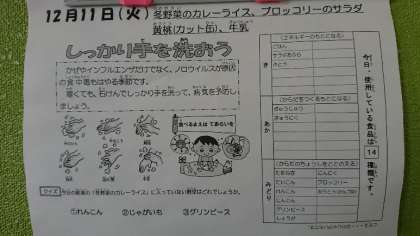 12月11日(火) 冬野菜のカレーライス、ブロッコリーのサラダ
黄桃(カット缶)、牛乳
しっかり手を洗おう
かぜやインフルエンザだけでなく、ノロウイルスが原因
の食中毒もはやる季節です。
寒くても、石けんでしっかり手を洗って、病気を予防し
ましょう。
食べるまえは てあらいを
クイズ
今日の給食の「冬野菜のカレーライス」に入っていない野菜はどれでしょうか。
①れんこん ②じゃがいも ③グリンピース
今日、使用している食品は
14
種類です。
き
(エネルギーのもとになる)
ごはん
さとう
あか
(からだをつくるもとになる)
ぎゅうにく
みどり
(からだのちょうしをととのえる)
たまねぎ
にんにく
にんじん
ブロッコリー
れんこん
グリンピース
しょうが